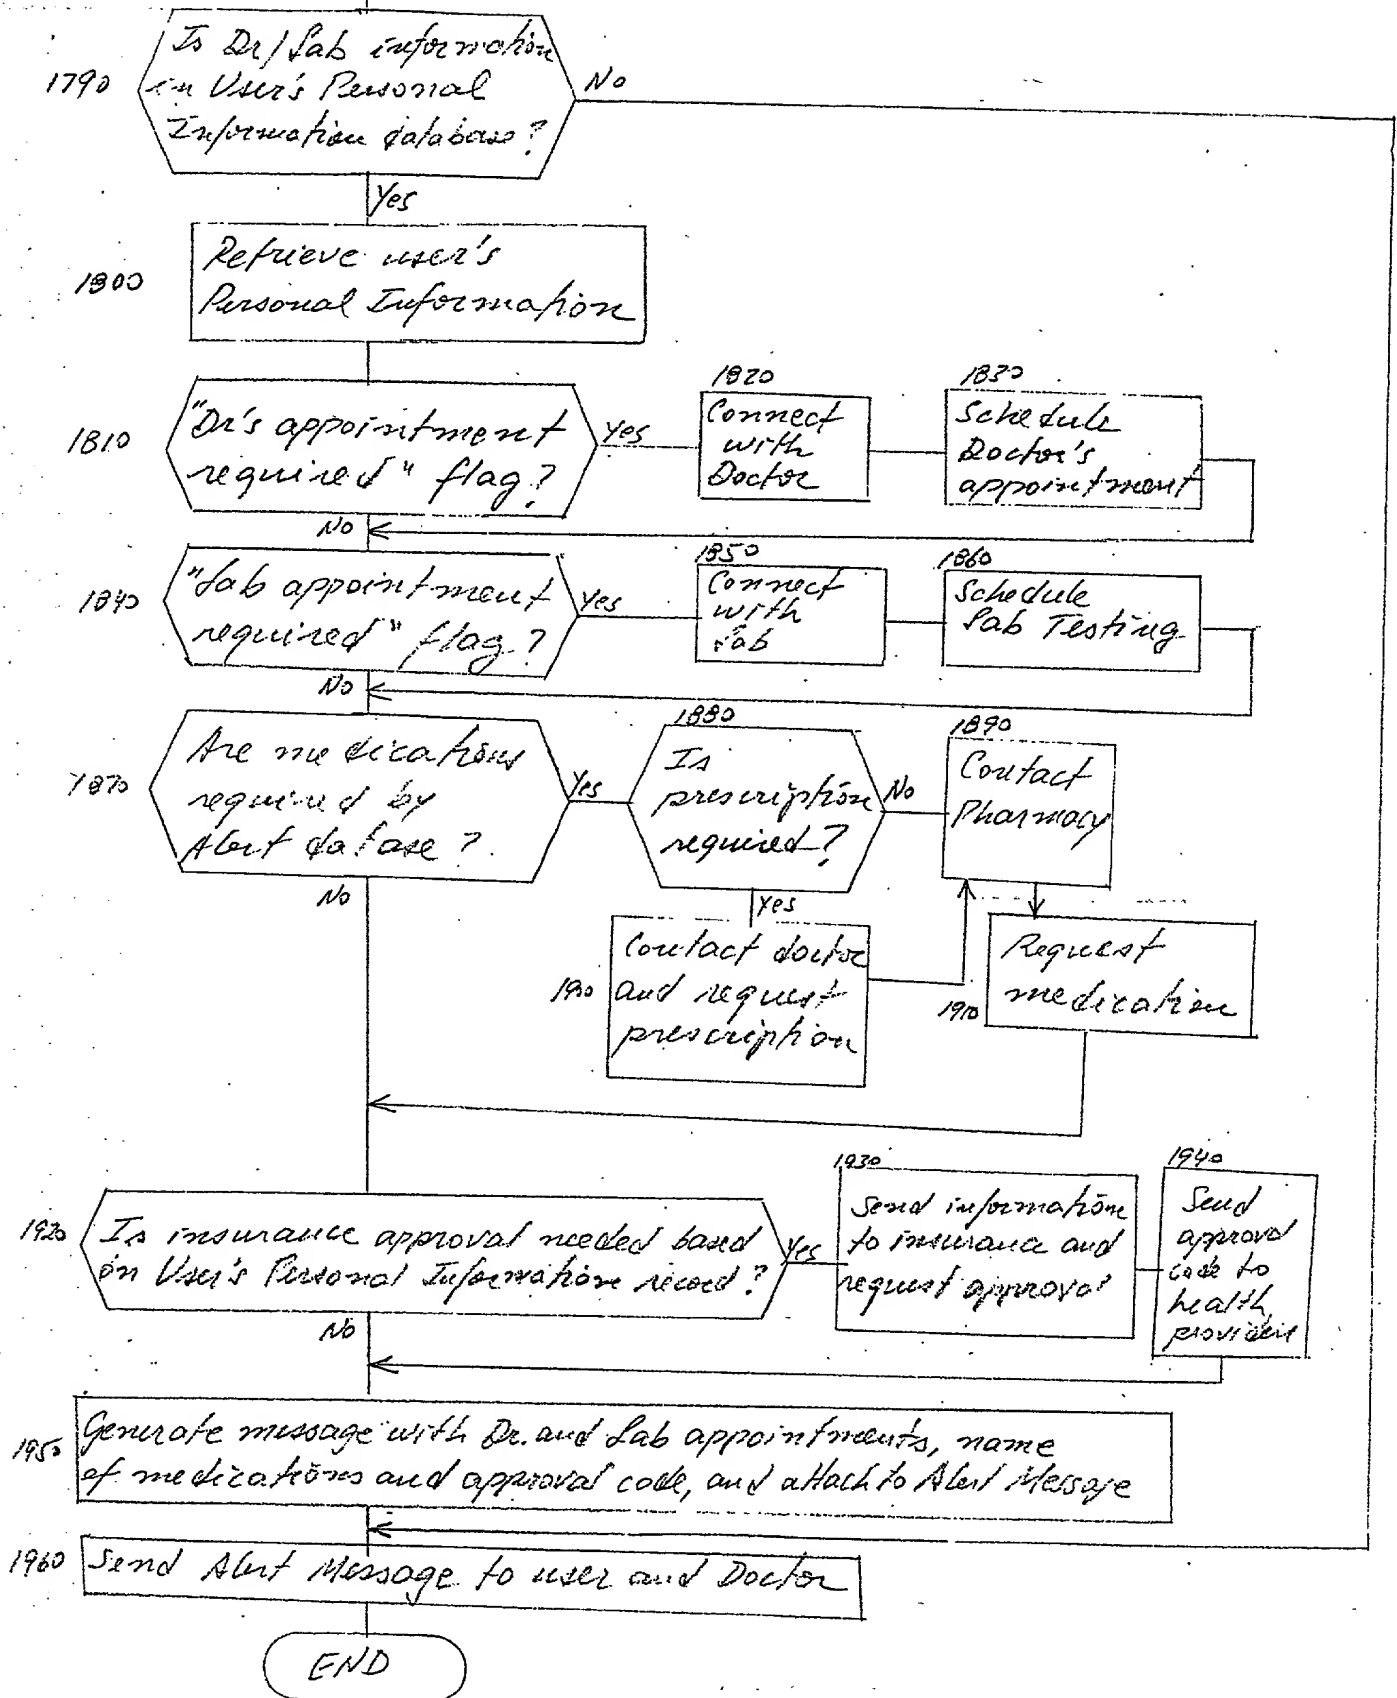 Is Dr/Lab information
1790
in User's Personal
Information database?
No
Yes
1800
Retrieve user's
Personal Information
1810
"Dr's appointment
required" flag?
Yes
1820
Connect
with
Doctor
1830
Schedule
Doctor's
appointment
No
1840
"Lab appointment
required" flag?
Yes
1850
Connect
with
Lab
1860
Schedule
Lab Testing
No
1870
Are medications
required by
Alert database?
Yes
1880
Is
prescription
required?
No
1890
Contact
Pharmacy
No
Yes
1900
Contact doctor
and request
prescription
1910
Request
medication
1920
Is insurance approval needed based
on User's Personal Information record?
Yes
1930
Send information
to insurance and
request approval
1940
Send
approval
code to
health
provider
No
1950
Generate message with Dr. and Lab appointments, name
of medications and approval code, and attach to Alert Message
1960
Send Alert Message to user and Doctor
END